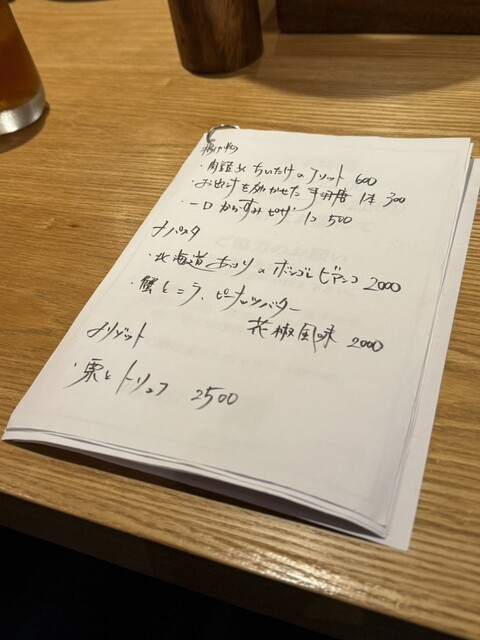 揚げ物
・肉詰めしいたけのフリット 600
・お出汁を効かせた手羽唐 1本 300
・一口からすみピザ 1コ 500
パスタ
・北海道あさりのボンゴレビアンコ 2000
・蟹とニラ、ピーナッツバター
花椒風味 2000
リゾット
・栗とトリュフ 2500
ご協力のお願い